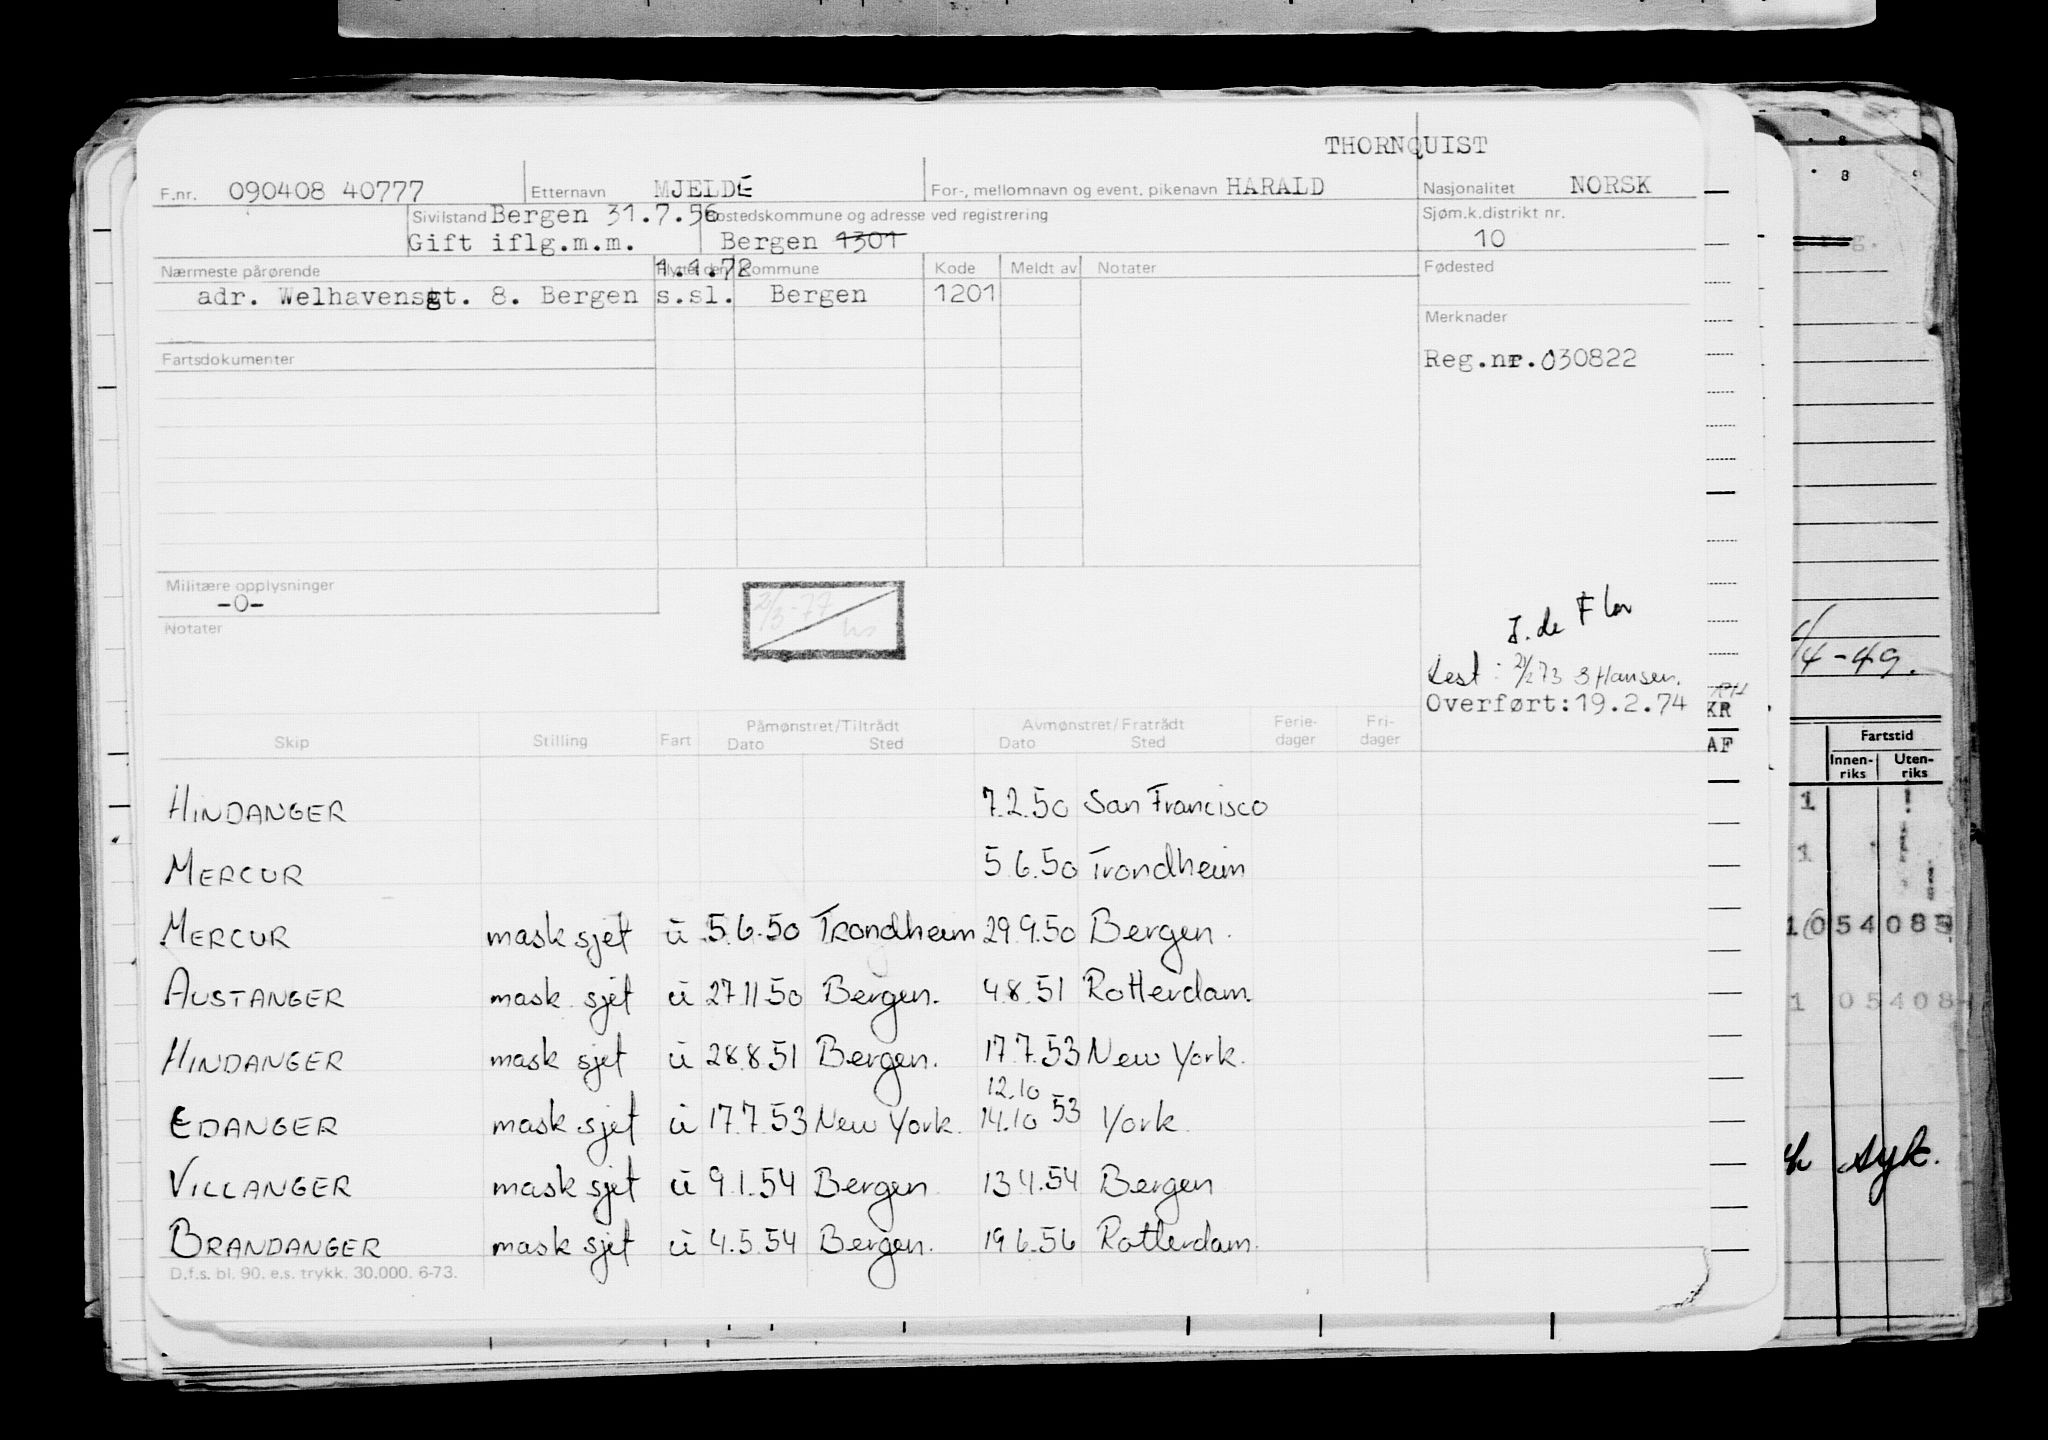 THORNQUIST
F.nr. 090408 40777 Etternavn MJELDE For-, mellomnavn og event. pikenavn HARALD Nasjonalitet NORSK
Sivilstand Bergen 31.7.56 Bostedskommune og adresse ved registrering Sjøm.k.distrikt nr.
Gift iflg.m.m. Bergen 1301 10
Nærmeste pårørende 1.1.72 Kommune Kode Meldt av Notater Fødested
adr. Welhavensgt. 8. Bergen s.sl. Bergen 1201
Merknader
Fartsdokumenter Reg.nr.030822
Militære opplysninger
-0-
2/3-77
Notater
J. de Flor
Test: 2/2 73 S Hansen.
Overført:19.2.74
KR
AF
Skip Stilling Fart Påmønstret/Tiltrådt Dato Sted Avmønstret/Fratrådt Dato Sted Ferie-dager Fri-dager
HINDANGER 7.2.50 San Francisco
MERCUR 5.6.50 Trondheim
MERCUR mask sjef ü 5.6.50 Trondheim 29.9.50 Bergen.
AUSTANGER mask sjef ü 27.11.50 Bergen. 4.8.51 Rotterdam.
HINDANGER mask sjef ü 28.8.51 Bergen. 17.7.53 New York.
12.10
EDANGER mask sjef ü 17.7.53 New York. 14.10 53 York
VILLANGER mask sjef ü 9.1.54 Bergen 13.4.54 Bergen
BRANDANGER mask sjef ü 4.5.54 Bergen. 19.6.56 Rotterdam.
D.f.s. bl. 90. e.s. trykk. 30.000. 6-73.
/4-49.
Fartstid
Innen-riks Uten-riks
1
1
10 54085
1 05408
syk.